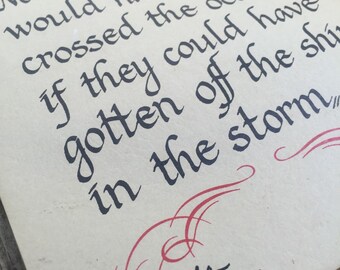 would h
crossed the oc
if they could have
gotten off the shi
in the storm,,